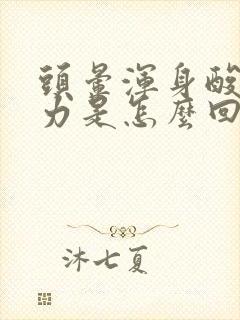 頭暈渾身酸
力是怎麼回
沐七夏